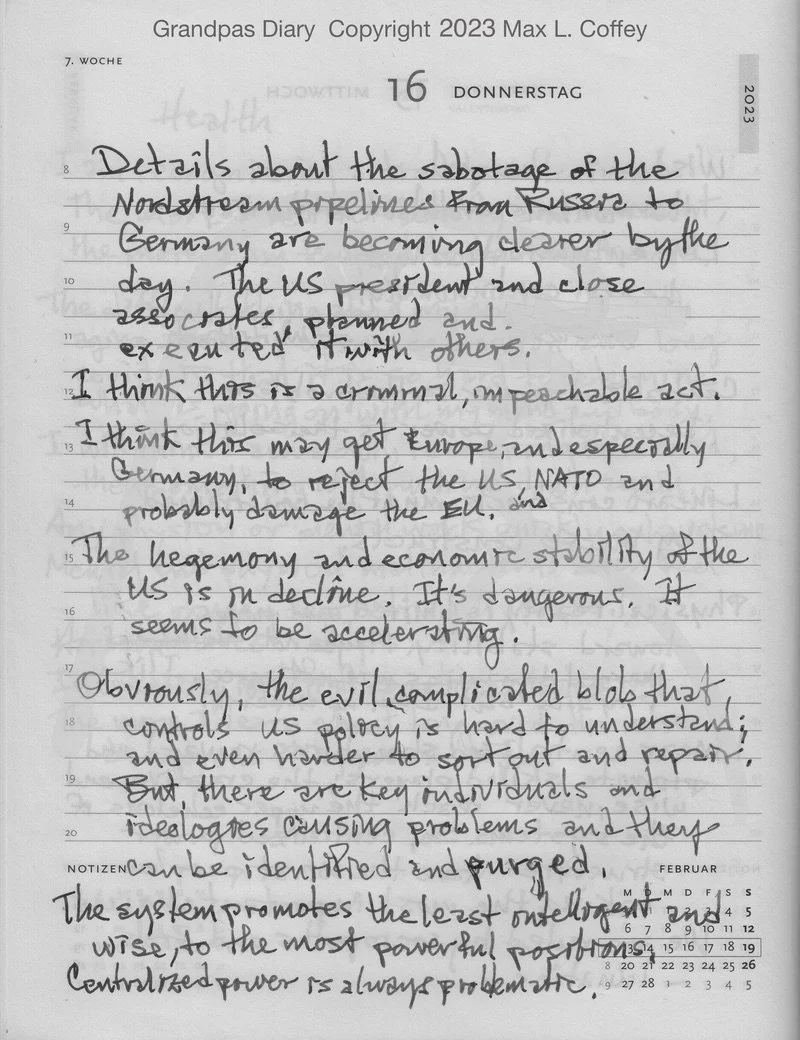 Grandpas Diary Copyright 2023 Max L. Coffey
7. WOCHE
16 DONNERSTAG
2023
8 Details about the sabotage of the
Nordstream pipelines from Russia to
9 Germany are becoming clearer by the
10 day. The US president and close
associates, planned and
11 executed it with others.
12 I think this is a criminal, impeachable act.
13 I think this may get Europe, and especially
Germany, to reject the US, NATO and
14 probably damage the EU. and
15 The hegemony and economic stability of the
US is in decline. It's dangerous. It
16 seems to be accelerating.
17 Obviously, the evil, complicated blob that
18 controls US policy is hard to understand;
and even harder to sort out and repair.
19 But, there are key individuals and
20 ideologies causing problems and they
NOTIZEN can be identified and purged.
FEBRUAR
M D M D F S S
The system promotes the least intelligent and
1 2 3 4 5
6 7 8 9 10 11 12
wise, to the most powerful positions.
13 14 15 16 17 18 19
8 20 21 22 23 24 25 26
Centralized power is always problematic.
9 27 28 1 2 3 4 5